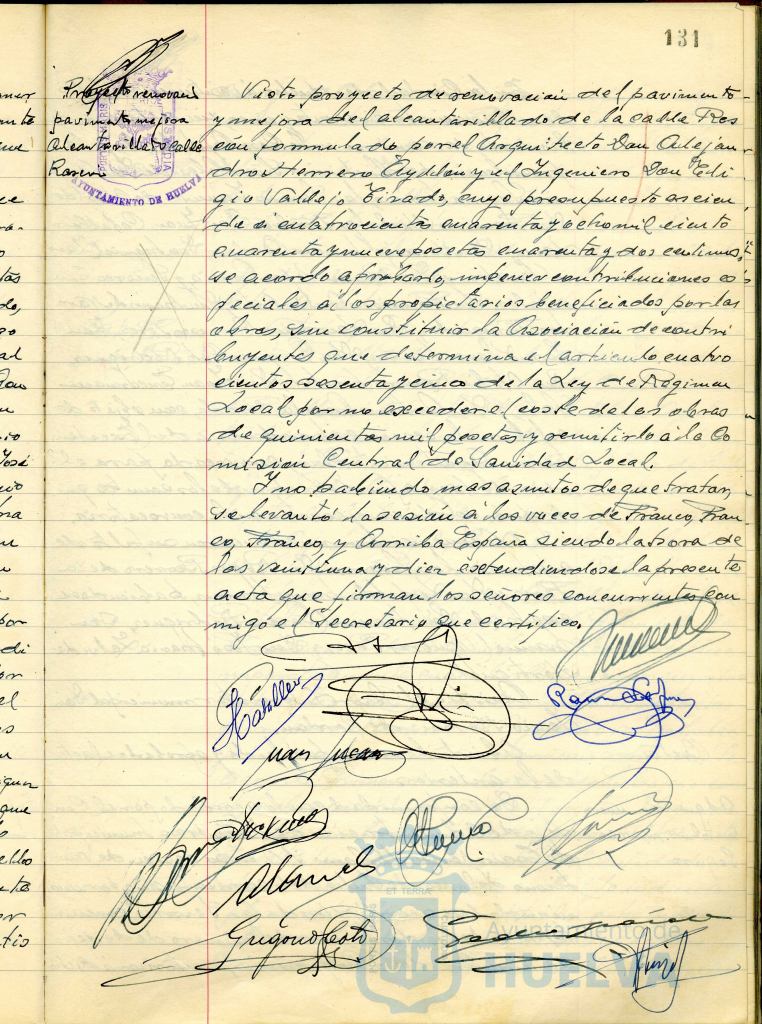 131
Proyecto renovación
pavimto y mejora
alcantarillado calle
Rascón
AYUNTAMIENTO DE HUELVA
Visto proyecto de renovación del pavimento
y mejora del alcantarillado de la calle Ras
cón formulado por el Arquitecto Don Alejan
dro Herrero Ayllón y el Ingeniero Don Edi
gio Vallejo Tirado, cuyo presupuesto ascien
de a cuatrocientas cuarenta y ocho mil ciento
cuarenta y nueve pesetas cuarenta y dos centimos,
se acordo aprobarlo, imponer contribuciones es
peciales a los propietarios beneficiados por las
obras, sin constituir la Asociación de contri
buyentes que determina el articulo cuatro
cientos sesenta y cinco de la Ley de Regimen
Local por no exceder el coste de las obras
de quinientas mil pesetas y remitirlo a la Co
misión Central de Sanidad Local.
Y no habiendo mas asuntos de que tratar,
se levantó la sesión a los voces de Franco, Fran
co, Franco, y Arriba España siendo la hora de
las veintiuna y diez extendiendose la presente
acta que firman los señores concurrentes con
migo el Secretario que certifico.
Gregorio Soto
ET TERRÆ
Ayuntamiento de
HUELVA